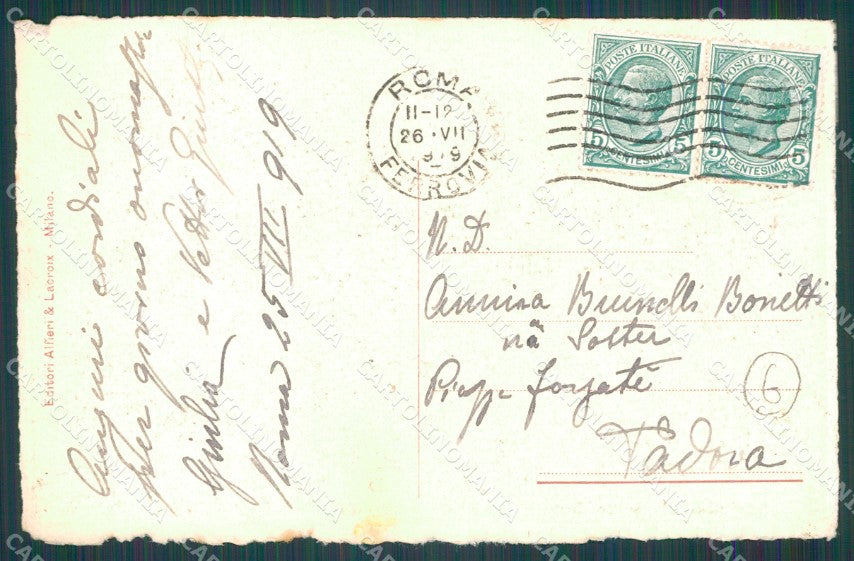 Auguri cordiali
per giorno onomastico
Giulia e Pietro Giunti
Roma 25 VII 919
Editori Alfieri & Lacroix - Milano.
ROMA
11-12
26 VII
1919
FERROVIA
POSTE ITALIANE
5 5
CENTESIMI
POSTE ITALIANE
5 5
CENTESIMI
N. D.
Annina Brunelli Bonetti
Piazza Forzatè
6
Padova
CARTOLINOMANIA